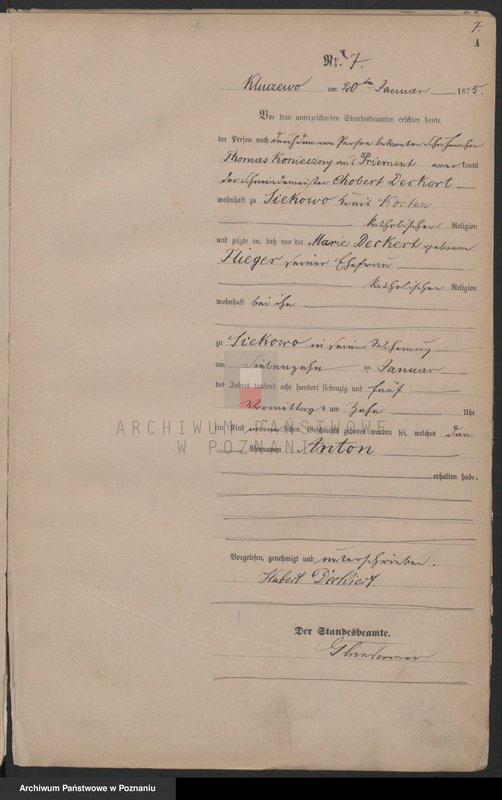 7.
A
Nr. 7.
Kluczewo am 20ten Januar 1875.
Vor dem unterzeichneten Standesbeamten erschien heute,
der Person nach durch den Person bekannten
Thomas Konieczny aus Priement anerkannt
der Schmiedemeister Chobert Deckert
wohnhaft zu Siekowo Kreis Kosten
katholischer Religion
und zeigte an, daß von der Marie Deckert geborene
Flieger seiner Ehefrau
katholischer Religion
wohnhaft bei ihm
zu Siekowo in seiner Wohnung
am siebenzehn ten Januar
des Jahres tausend acht hundert siebenzig und fünf
Vormittags um Zehn Uhr
ein Kind männlichen Geschlechts geboren worden sei, welches den
Vornamen Anton
erhalten habe.
Vorgelesen, genehmigt und unterschrieben.
Hubert Deckiert
Der Standesbeamte.
ARCHIWUM PAŃSTWOWE
W POZNANIU
Archiwum Państwowe w Poznaniu